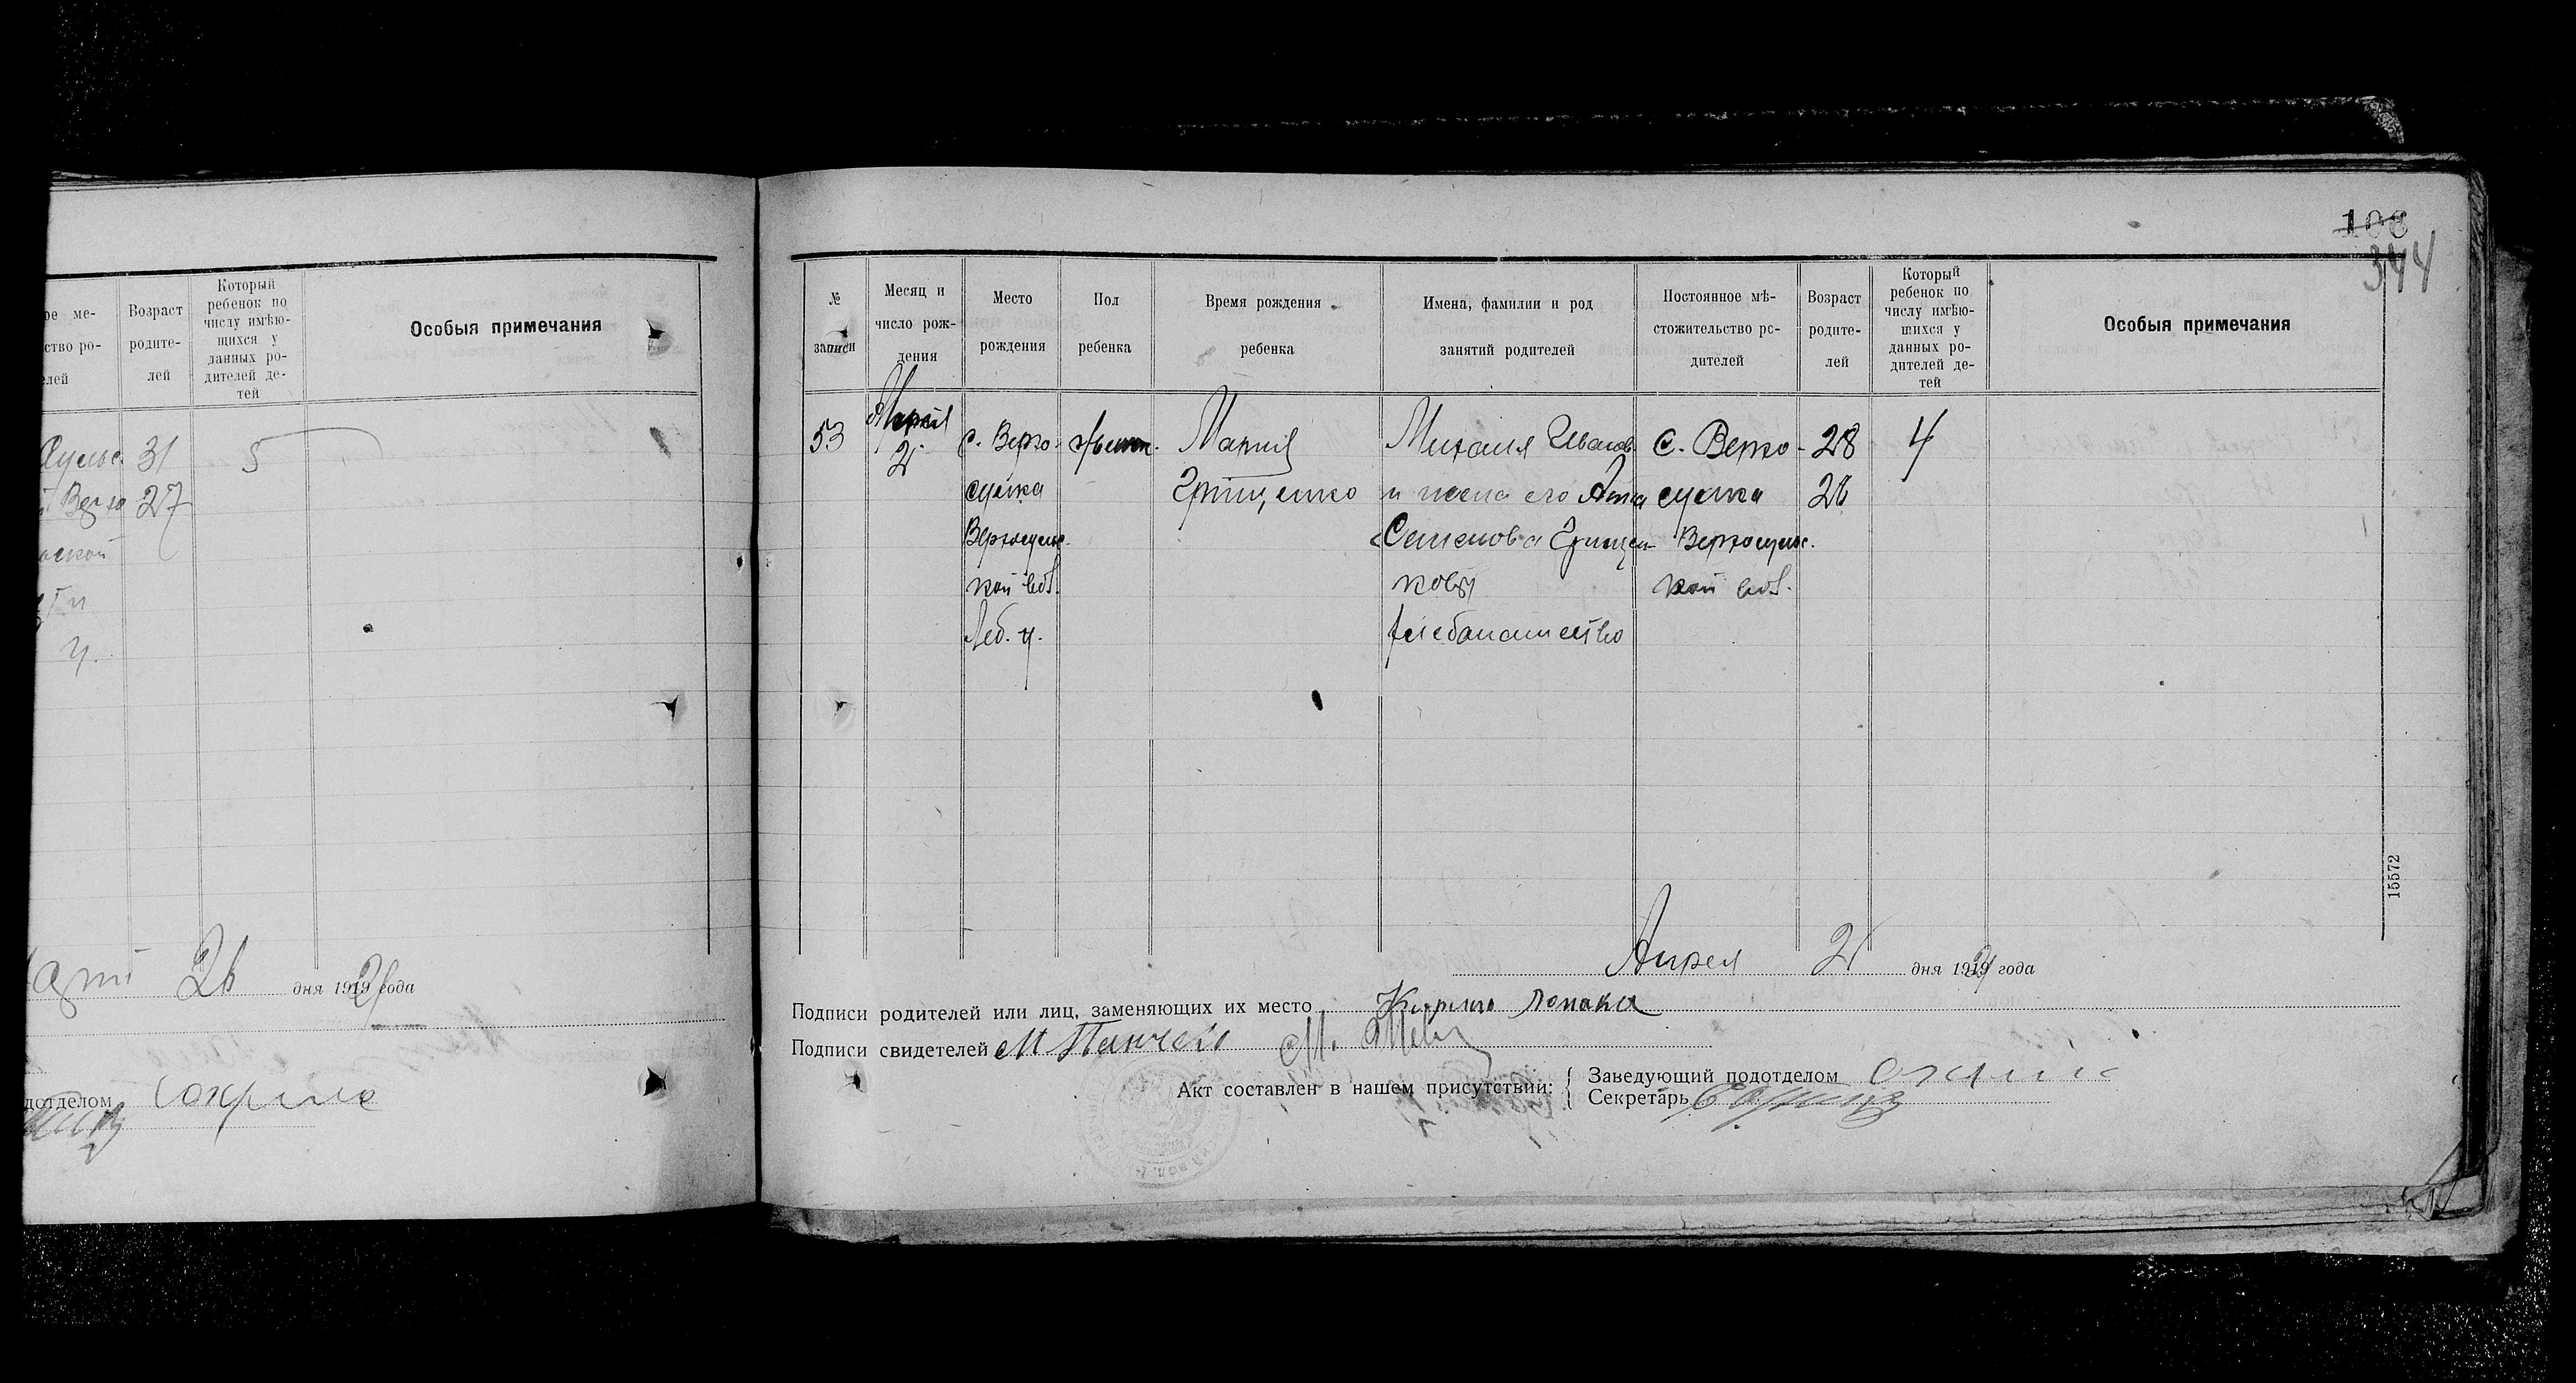 ре ме-
ство ро-
лей
Возраст
родите-
лей
Который
ребенок по
числу имѣю-
щихся у
данных ро-
дителей де-
тей
Особыя примечания
31
5
27
ской
у.
26
дня 1919 года
дотделом
106
344
№
записи
Месяц и
число рож-
дения
Место
рождения
Пол
ребенка
Время рождения
ребенка
Имена, фамилии и род
занятий родителей
Постоянное мѣ-
стожительство ро-
дителей
Возраст
родите-
лей
Который
ребенок по
числу имѣю-
щихся у
данных ро-
дителей де-
тей
Особыя примечания
53
2
с. Верхо-
сулка
Верхосульс-
кой вол.
Леб. у.
женск.
Мария
Грищенко
Михаил Иванов
и жена его Анна
Семенова Грищен-
ковы
хлебопашество
с. Верхо-
сулка
Верхосульс-
кой вол.
28
28
4
15572
Апреля 2 дня 1921 года
Подписи родителей или лиц, заменяющих их место Кирило
Подписи свидетелей
Акт составлен в нашем присутствии:
Заведующий подотделом
Секретарь